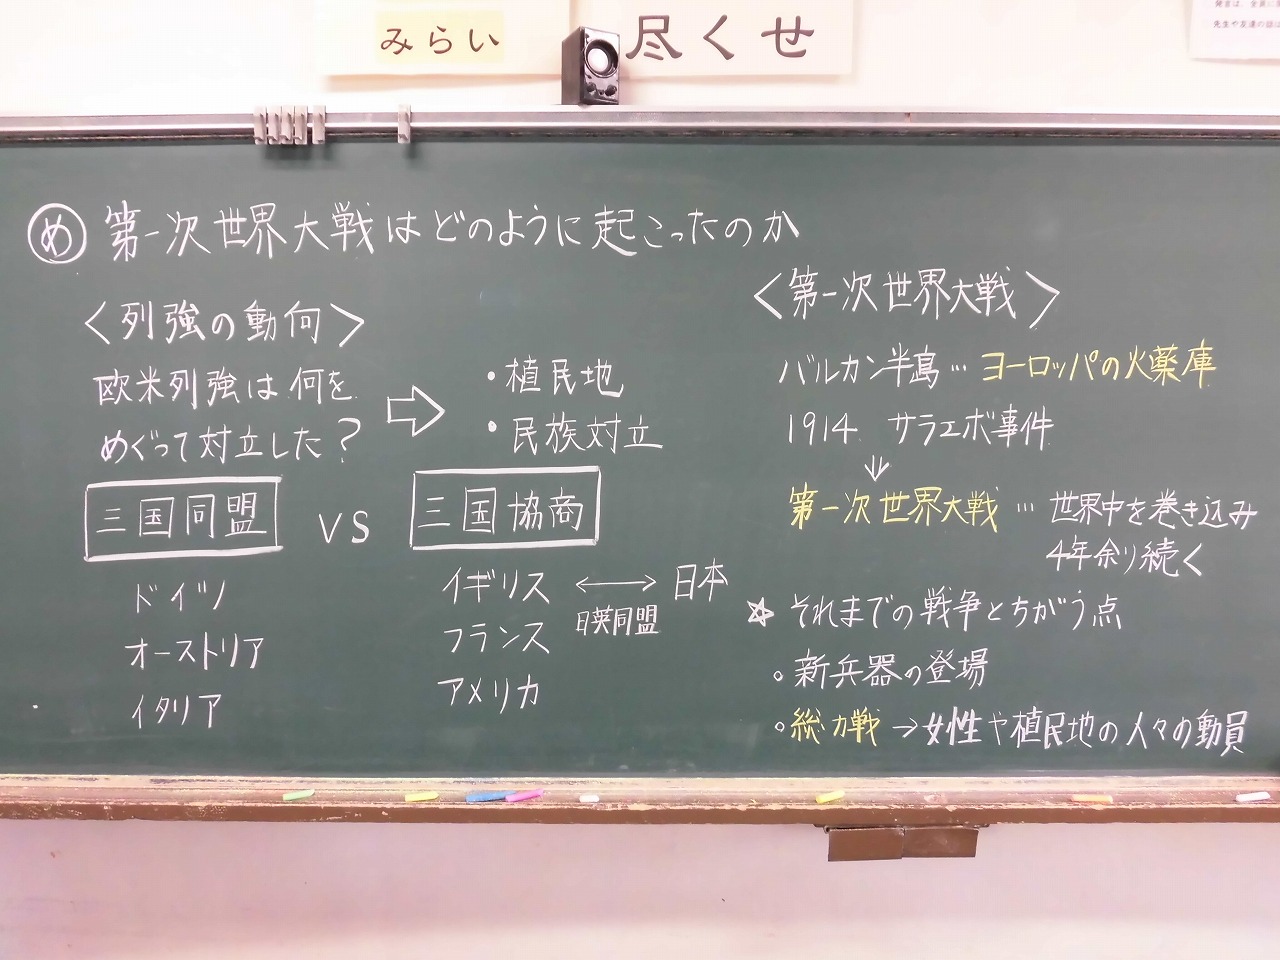 みらい
尽くせ
発言は、全員に
先生や友達の話は
め 第一次世界大戦はどのように起こったのか
〈列強の動向〉
欧米列強は何を
めぐって対立した?
・植民地
・民族対立
三国同盟 VS 三国協商
ドイツ
オーストリア
イタリア
イギリス ⟷ 日本
日英同盟
フランス
アメリカ
〈第一次世界大戦〉
バルカン半島…ヨーロッパの火薬庫
1914 サラエボ事件
↓
第一次世界大戦…世界中を巻き込み
4年余り続く
☆それまでの戦争とちがう点
○新兵器の登場
○総力戦→女性や植民地の人々の動員